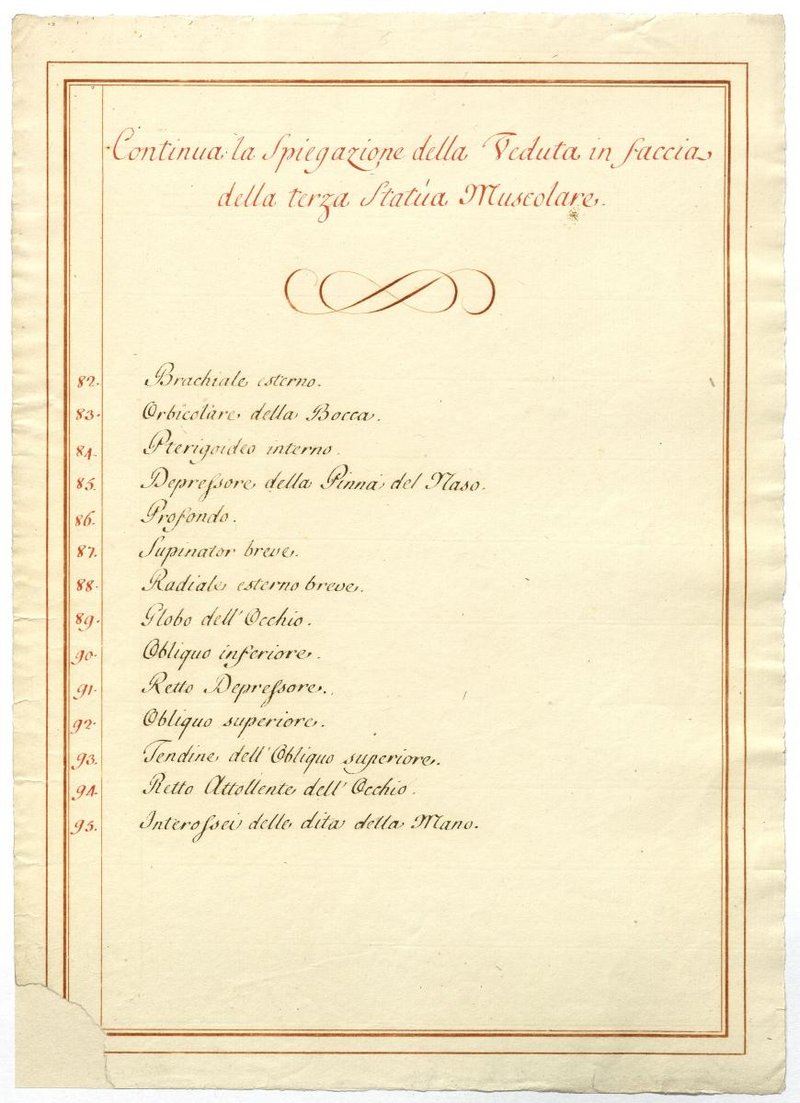 Continua la Spiegazione della Veduta in faccia
della terza Statúa Muscolare.
82. Brachiale esterno.
83. Orbicolare della Bocca.
84. Pterigoideo interno.
85. Depreſsore della Pinna del Naso.
86. Profondo.
87. Supinator breve.
88. Radiale esterno breve.
89. Globo dell' Occhio.
90. Obliquo inferiore.
91. Retto Depreſsore.
92. Obliquo superiore.
93. Tendine dell' Obliquo superiore.
94. Retto Attollente dell' Occhio.
95. Interoſsei delle dita della Mano.